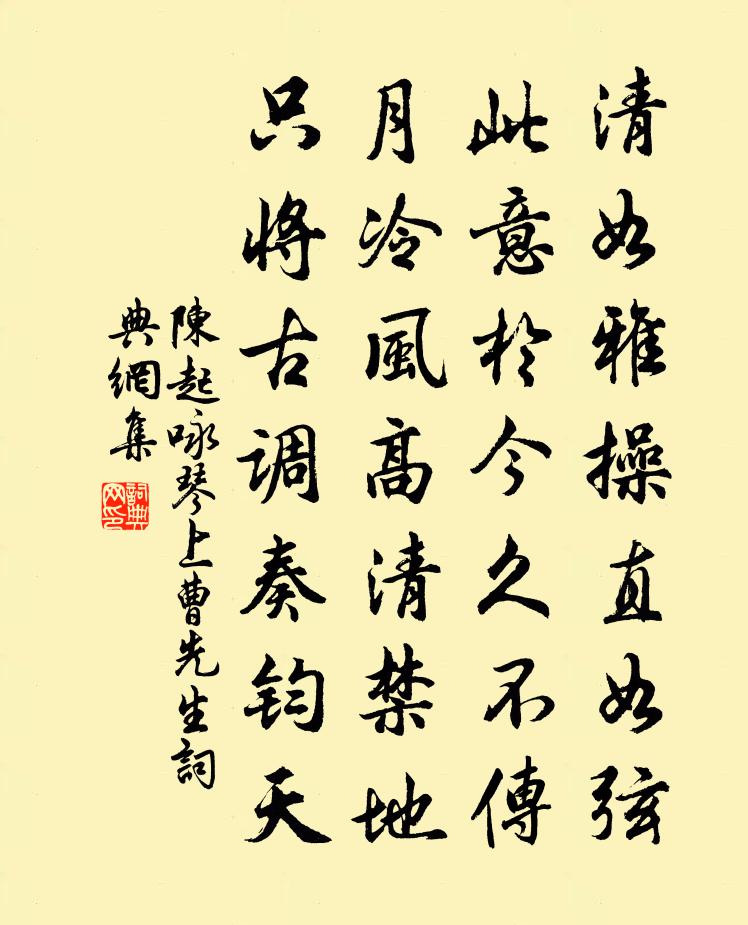 清如雅操直如弦
此意於今久不傳
月冷風高清禁地
只將古调奏钧天
陳起咏琴上曹先生詞
典網集
詞典
网印